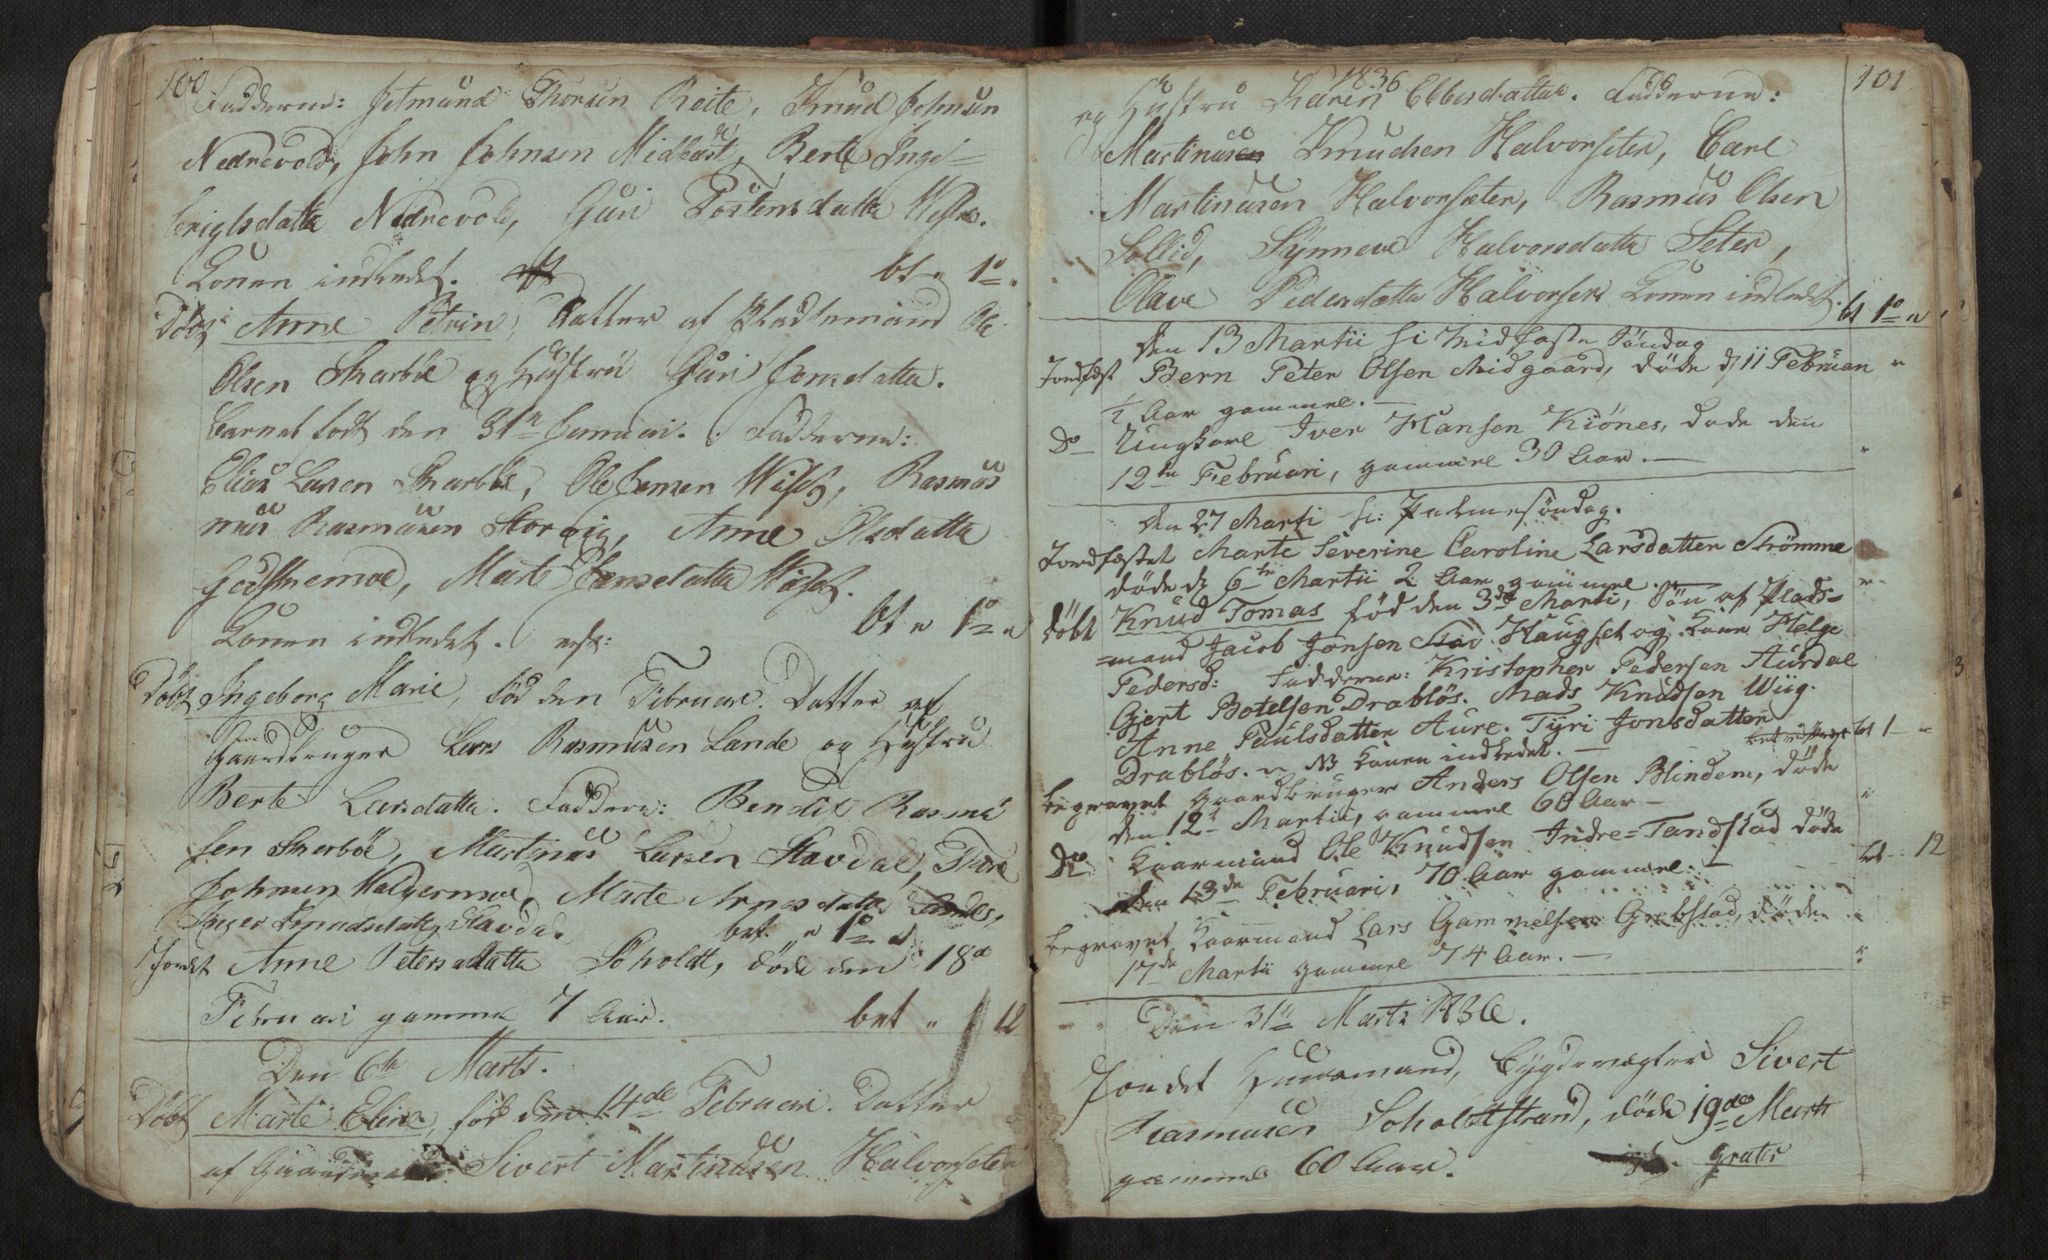 100
Fadderne: Jetmund Thorsen Reite, Knud Johnsen
Nedrevold, John Johnsen Midtbøst, Berte Inge-
brigtsdatter Nedrevold, Guri Tostensdatter
Konen indledet. bt " 1 "
Døbt Anne Petrin, Datter af Pladsemand Ole
Olsen Skarbøe og Hustru Guri Jonsdatter.
Barnet født den 31te Januar. Fadderne:
Elias Larsen Skarbøe, Ole Jensen Rasmus
mus Rasmusen Storvig, Anne Olsdatter
Marte Jensdatter
Konen indledet. bt " 1 "
Døbt Ingeborg Marie, født den Februar. Datter af
Gaardbruger Lars Rasmusen Lande og Hustru
Berte Larsdatter. Faddere: Bendix Rasmu
sen Skarbøe, Martinus Larsen Stavdal, Thore
Johnsen Marte Arnesdatter Lande,
Knudsdatter Stavdal. bet " 1 "
Jordet Anne Petersdatter Soholdt, døde den 18de
Februari gammel 7 Aar. bet " 12
Den 6te Marts.
Døbt Marte Elina, fød den 14de Februar. Datter
af Gaardmand Sivert Martinusen Halvorseter
1836
101
og Hustru Karen Ebbesdatter. Fadderne:
Martinusen Knudsen Halvorseter, Carl
Martinusen Halvorsæter, Rasmus Olsen
Sollid, Synneve Halvorsdatter Seter,
Olave Pedersdatter Halvorseter Konen indledet. bt 1 "
Den 13 Martii fi Midfaste Søndag
Jordfæst Bern Peter Olsen Midgaard, døde d 11 Februari "
1/2 Aar gammel. —
Do Ungkarl Iver Hansen Kiönes, døde den
12te Februari, gammel 30 Aar. — "
den 27 Marti fi: Palmesöndag.
Jordfæstet Marte Severine Caroline Larsdatter Strømme
døde d 6te Martii 2 Aar gammel. "
døbt Knud Tomas født den 3de Marti, Søn af Plads=
=mand Jacob Jonsen Haugset og Kone Helge
Pedersd: Fadderne: Kristopher Pedersen Aurdal
Gjert Botelsen Drabløs. Mads Knudsen Wiig.
Anne Paulsdatter Aure. Tyri Jonsdatter
Drabløs. NB Konen indledet. — bt 1 "
Begravet Gaardbruger Anders Olsen Blindem, døde
den 12te Martii, gammel 60 Aar —
Do Kaarmand Ole Knudsen Indre=Tandstad døde
den 13de Februari, 70 Aar gammel. — bt 12
begravet Kaarmand Lars Gammelsen Grebstad, døde
17de Martii gammel 74 Aar. — "
Den 31te Marts 1836.
Jordet Huusmand, Bygdevægter Sivert
Rasmusen Soholdtstrand, døde 19de Marts
gammel 60 Aar. gratis